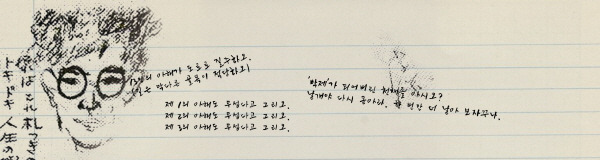 13인의 아해가 도로로 질주하오.
(길은 막다른 골목이 적당하오)
제 1의 아해도 무섭다고 그리오.
제 2의 아해도 무섭다고 그리오.
제 3의 아해도 무섭다고 그리오.
'박제'가 되어버린 천재를 아시오?
날개야 다시 돋아라. 한 번만 더 날아 보자꾸나.
トキドキ人生の